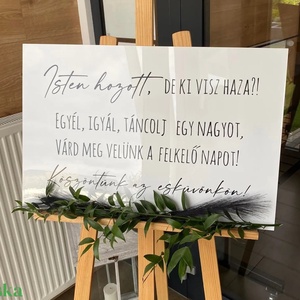 Isten hozott, DE KI VISZ HAZA?!
EGYÉL, IGYÁL, TÁNCOLJ EGY NAGYOT,
VÁRD MEG VELÜNK A FELKELŐ NAPOT!
Köszöntünk az esküvőnkön!
ka